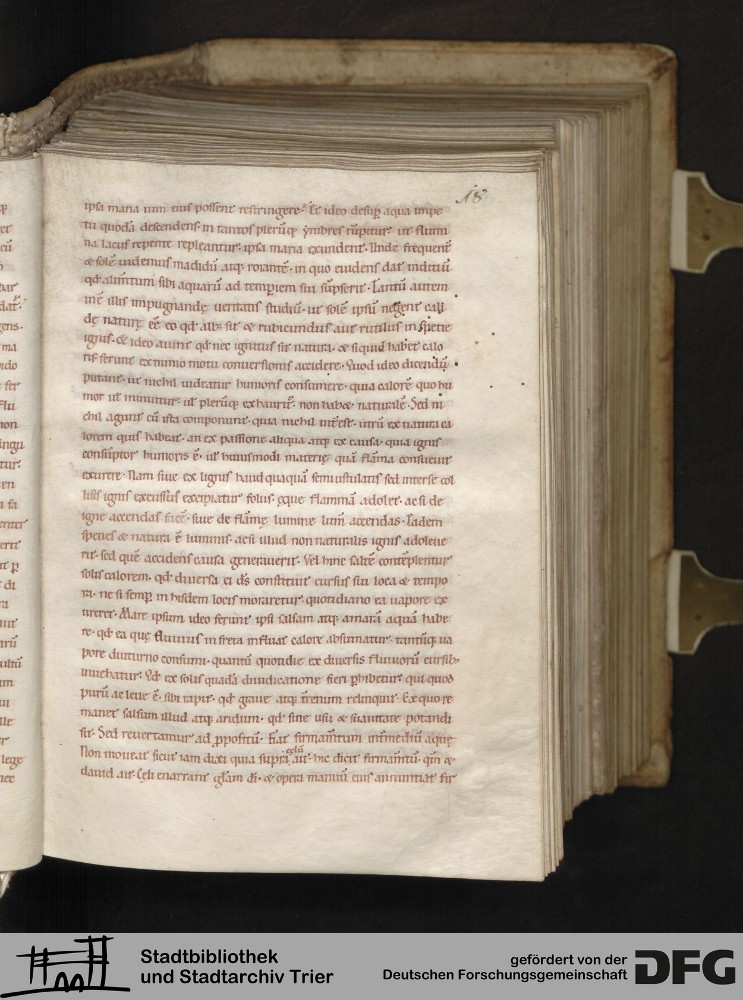 18
ipsa maria uim eius possent restringere. Et ideo desup aqua impe
tu quodā descendens. in tantos plerūq; ymbres rūpitur. ut flumi
na lacus repente repleantur. ipsa maria exundent. Unde frequent
& solē uidemus madidū atq; rorantē. in quo euidens dat indiciū
qd alimtum sibi aquarū ad temperiem sui sūpserit. Tantū autem
inē illis impugnandę ueritatis studiū. ut solē ipsū negent cali
dę naturę eē eo qd albus sit & rubicundus aut rutilus in specie
ignis. & ideo aiunt qd nec ignitus sit natura. & siquid habet calo
ris ferunt ex nimio motu conuersionis accidere. Quod ideo dicendū
putant. ut nichil uideatur humoris consumere. quia calorē quo hu
mor ut minuitur. ut plerūq; exhaurit. non habet naturalē. Sed ni
chil agunt cū ista componunt. quia nichil intest. utrū ex natura ca
lorem quis habeat. an ex passione aliqua atq; ex causa. quia ignis
consūptor humoris ē. ut huiusmodi materię quā flāma consueuit
exurere. Nam siue ex lignis haud quaquā semiustulatis sed inter se col
lisis ignis excussus excipiatur foliis. eque flammā adolet. ac si de
igne accendas siue de flāmę lumine lum accendas. Eadem
species & natura ē luminis. acsi illud non naturalis ignis adoleue
rit. sed quē accidens causa generauerit. Vel hinc saltē contēplentur
solis calorem. qd diuersa ei ds constituit cursus sui loca & tempo
ra. ne si semp in hisdem locis moraretur. quotidiano ea uapore ex
ureret. Mare ipsum ideo ferunt ipsi salsam atq; amarā aquā habe
re. qd ea quę fluuius in freta influat calore absumatur. tantūq; ua
pore diuturno consumi. quantū quotidie ex diuersis fluuiorū cursib;
inuehatur. Qd ex solis quadā diiudicatione fieri phibetur qui quod
purū ac leue ē. sibi rapit. qd graue atq; trenum relinquit. Ex quo re
manet salsum illud atq; aridum. qd sine usu & suauitate potandi
sit. Sed reuertamur ad ppositū. Fiat firmamtum in medio aquę
Non moueat sicut iam dixi quia supra celū ait. hic dicit firmamtū. qm &
dauid ait. Cęli enarrant glam di. & opera manuū eius annuntiat fir
Stadtbibliothek
und Stadtarchiv Trier
gefördert von der
Deutschen Forschungsgemeinschaft
DFG